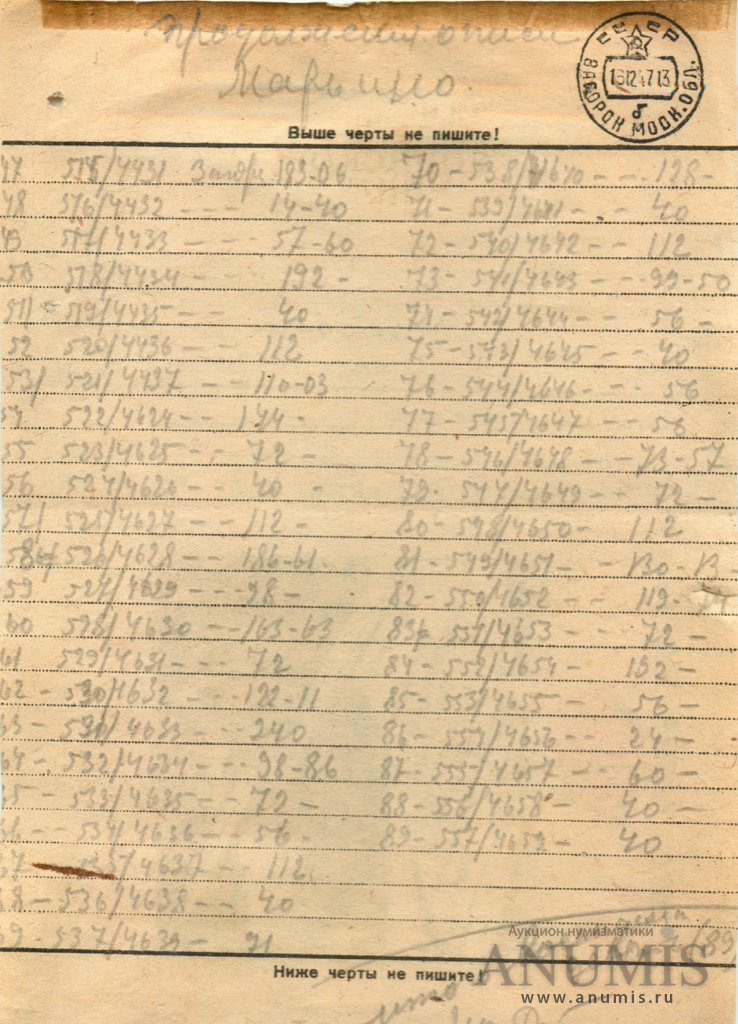 Продолжение описи
Марьино.
СССР
ЗАГОРСК МОСК.ОБЛ.
18124713
б
Выше черты не пишите!
47 515/4431 Загорс 183-06
70 - 538/4640 - - - 128 -
48 516/4432 - - - 14-40
71 - 539/4641 - - 40
49 517/4433 - - - 57-60
72 - 540/4642 - - - 112
50 518/4434 - - - 192 -
73 - 541/4643 - - 99-50
51 519/4435 - - - 40
74 - 542/4644 - - - 56 -
52 520/4436 - - - 112
75 - 543/4645 - - 40
53 521/4437 - - - 110-03
76 - 544/4646 - - - 56
54 522/4624 - - 144 -
77 - 545/4647 - - 56
55 523/4625 - - - 72 -
78 - 546/4648 - - 73-57
56 524/4626 - - 40 -
79 - 547/4649 - - - 72 -
57 525/4627 - - - 112 -
80 - 548/4650 - - 112
58 526/4628 - - - 186-61
81 - 549/4651 - -
59 527/4629 - - - 98 -
82 - 550/4652 - - 119 -
60 528/4630 - - 163-63
83 551/4653 - - 72 -
61 529/4631 - - - 72
84 - 552/4654 - 192 -
62 - 530/4632 - - - 122-11
85 - 553/4655 - - 56 -
63 - 531/4633 - - - 240
86 - 554/4656 - - 24 -
64 - 532/4634 - - - 98-86
87 - 555/4657 - - 60 -
65 - 533/4635 - - - 72 -
88 - 556/4658 - - 40 -
66 - 534/4636 - - 56 -
89 - 557/4659 - - 40
67 535/4637 - - - 112
68 - 536/4638 - - - 40
69 - 537/4639 - - 91
Аукцион нумизматики
ANUMIS
www.anumis.ru
Ниже черты не пишите!